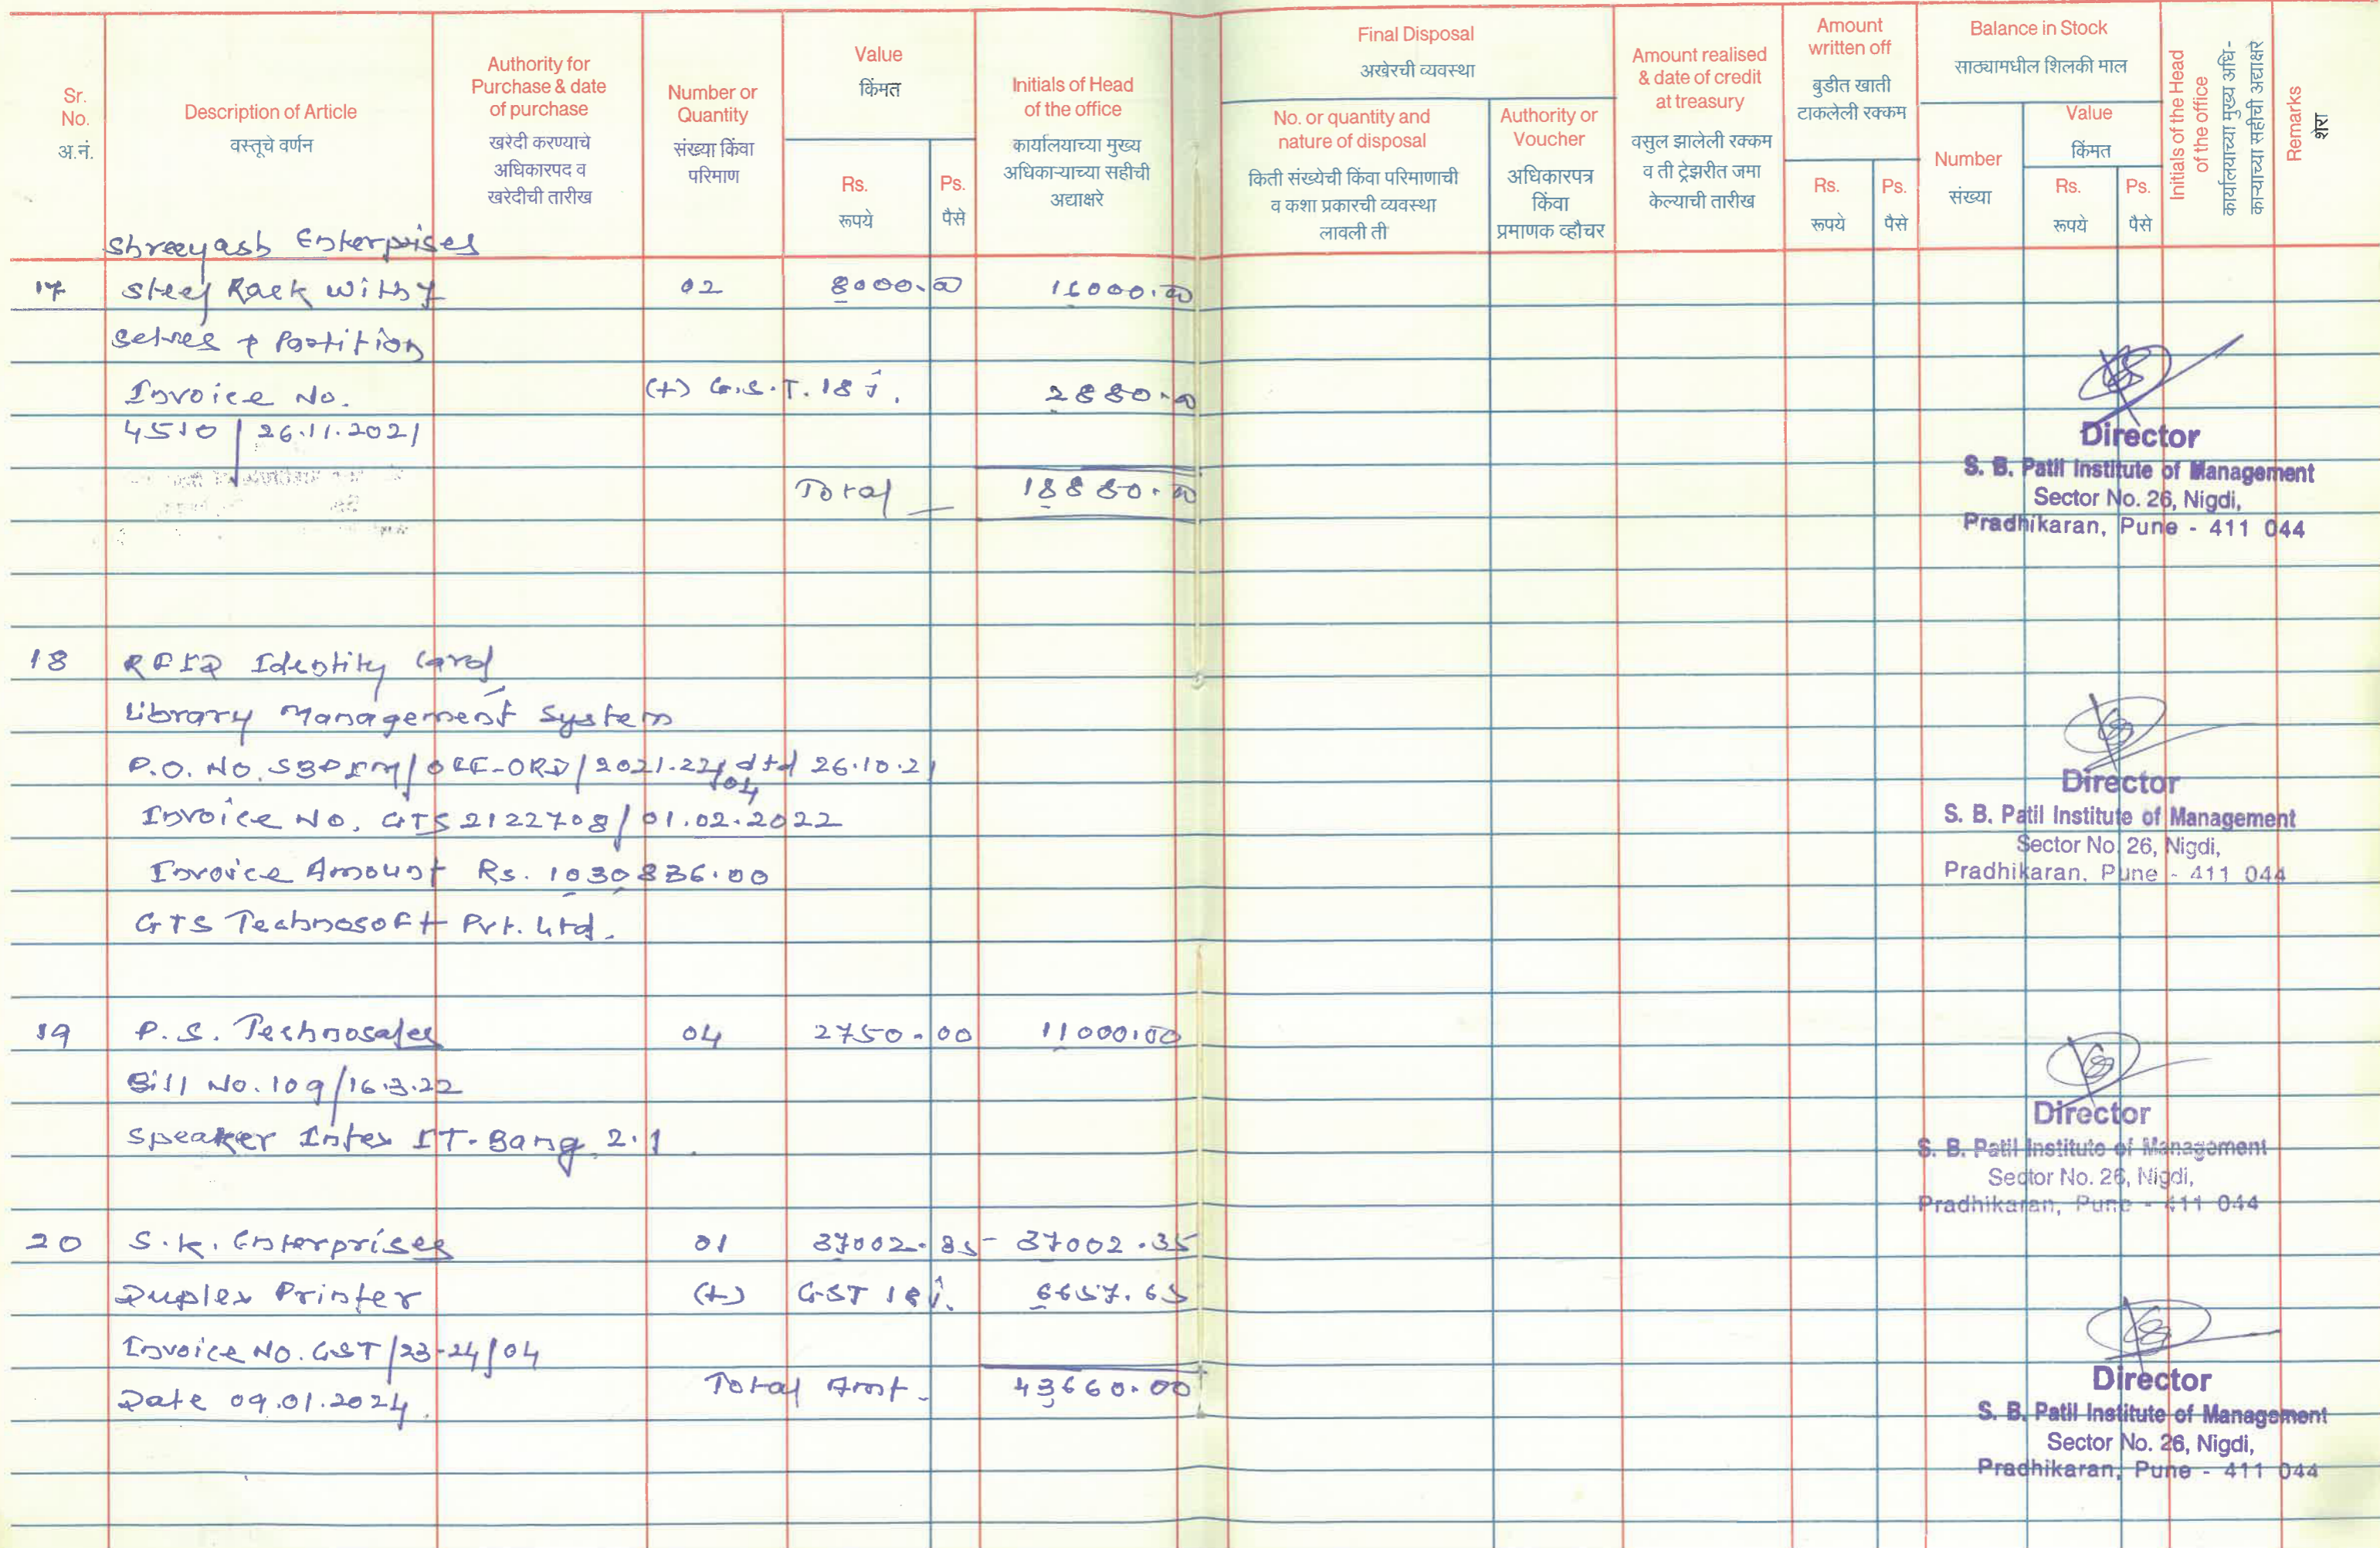 Sr. No. अ.नं.
Description of Article वस्तूचे वर्णन
Authority for Purchase & date of purchase खरेदी करण्याचे अधिकारपद व खरेदीची तारीख
Number or Quantity संख्या किंवा परिमाण
Value किंमत
Rs. रूपये
Ps. पैसे
Initials of Head of the office कार्यालयाच्या मुख्य अधिकाऱ्याच्या सहीची अद्याक्षरे
Final Disposal अखेरची व्यवस्था
No. or quantity and nature of disposal किती संख्येची किंवा परिमाणाची व कशा प्रकारची व्यवस्था लावली ती
Authority or Voucher अधिकारपत्र किंवा प्रमाणक व्हौचर
Amount realised & date of credit at treasury वसुल झालेली रक्कम व ती ट्रेझरीत जमा केल्याची तारीख
Amount written off बुडीत खाती टाकलेली रक्कम
Rs. रूपये
Ps. पैसे
Balance in Stock साठ्यामधील शिलकी माल
Number संख्या
Value किंमत
Rs. रूपये
Ps. पैसे
Initials of the Head of the office कार्यालयाच्या मुख्य अधि-काऱ्याच्या सहीची अद्याक्षरे
Remarks शेरा
Shreeyash Enterprises
17 Steel Rack with 7 02 8000.00 16000.00
Selves & Partition
Invoice No. (+) G.S.T. 18 %. 2880.00
4510 / 26.11.2021
Total _ 18880.00
Director
S. B. Patil Institute of Management
Sector No. 26, Nigdi,
Pradhikaran, Pune - 411 044
18 RFID Identity Card
Library Management System
P.O. No. SBPIM/OFF-ORD/2021.22/04 dtd 26.10.21
Invoice No. GTS2122708/01.02.2022
Invoice Amount Rs. 1030836.00
GTS Technosoft Pvt. Ltd.
Director
S. B. Patil Institute of Management
Sector No. 26, Nigdi,
Pradhikaran, Pune - 411 044
19 P.S. Technosales 04 2750.00 11000.00
Bill No. 109/16.3.22
Speaker Intex IT-Bang 2.1
Director
S. B. Patil Institute of Management
Sector No. 26, Nigdi,
Pradhikaran, Pune - 411 044
20 S.K. Enterprises 01 37002.35 - 37002.35
Duplex Printer (+) GST 18 %. 6657.65
Invoice No. GST/23-24/04
Date 09.01.2024. Total Amt. 43660.00
Director
S. B. Patil Institute of Management
Sector No. 26, Nigdi,
Pradhikaran, Pune - 411 044